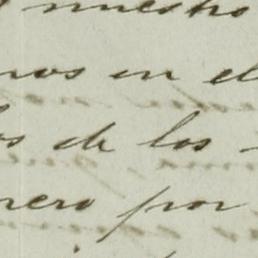 nuestro
nos en el
os de los
nero por